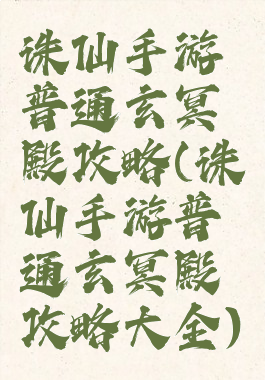 诛仙手游
普通玄冥
殿攻略(诛
仙手游普
通玄冥殿
攻略大全)